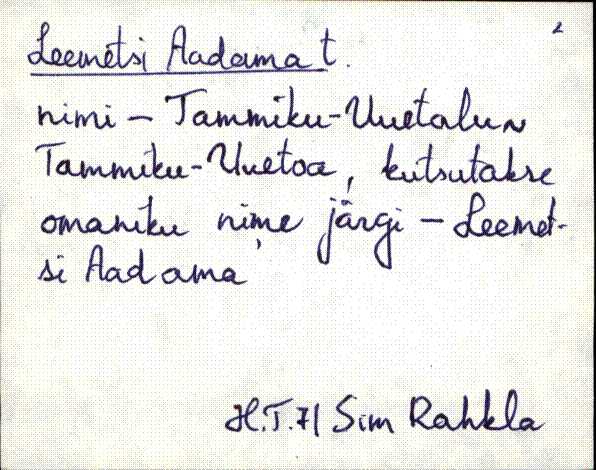 2
Leemetsi Aadama t.
nimi – Tammiku-Uuetalu ~
Tammiku-Uuetoa, kutsutakse
omaniku nime järgi – Leemet-
si Aadama
H.T.71 Sim Rahkla